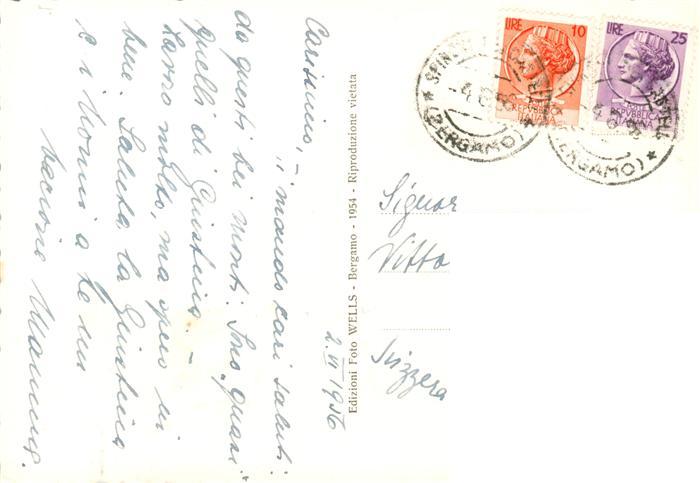 Carissimo, -
ti mando cari saluti
da questi bei monti. Sono "quasi"
quelli di Giustina. -
Lavoro molto, ma spero
bene. Saluta la Giustina
e i nonni a te un
bacione Mamma.
2.VI 1956
Edizioni Foto WELLS - Bergamo - 1954 - Riproduzione vietata
Signor
Vitto
Svizzera
LIRE 10
REPVBBLICA
ITALIANA
LIRE 25
REPVBBLICA
ITALIANA
(BERGAMO)
(BERGAMO)